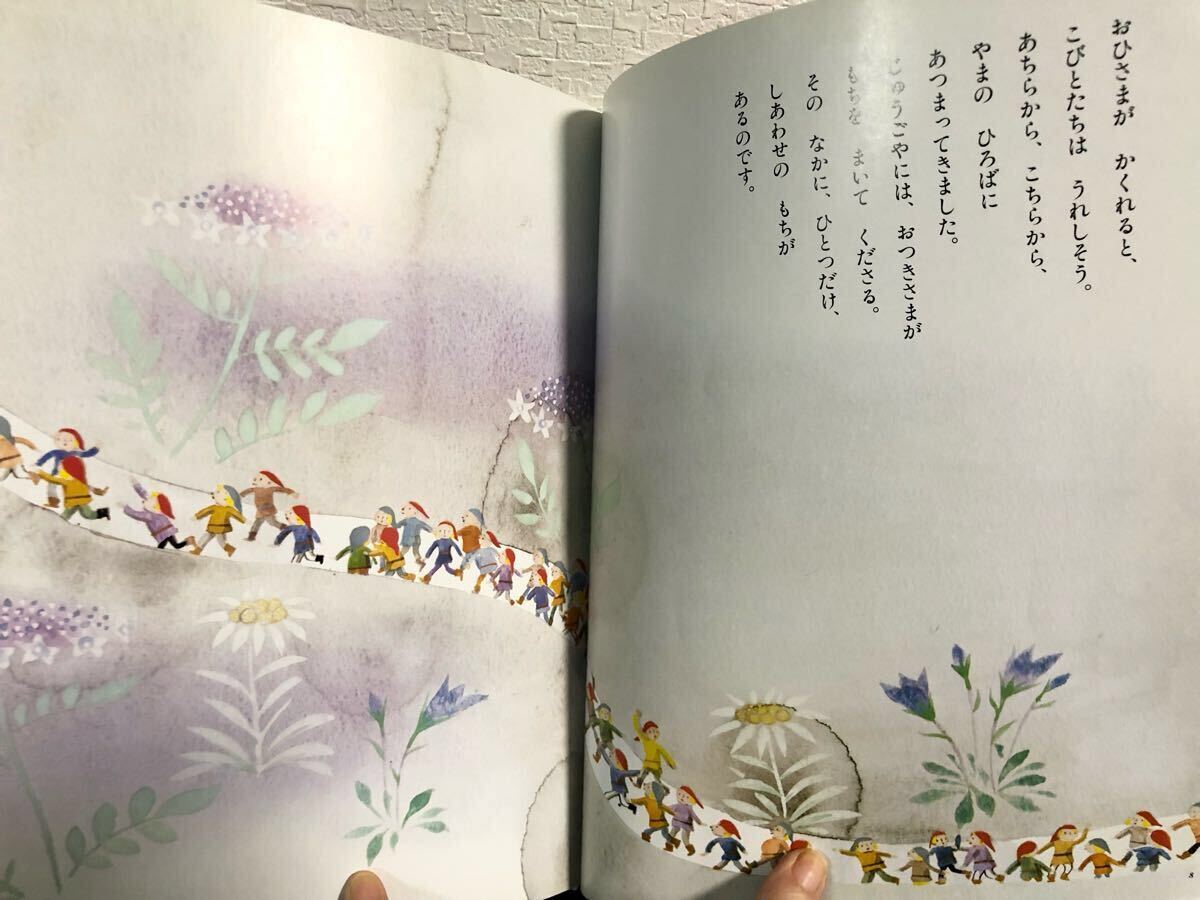 おひさまが　かくれると、
こびとたちは　うれしそう。
あちらから、こちらから、
やまの　ひろばに
あつまってきました。
じゅうごやには、おつきさまが
もちを　まいて　くださる。
その　なかに、ひとつだけ、
しあわせの　もちが
あるのです。
8